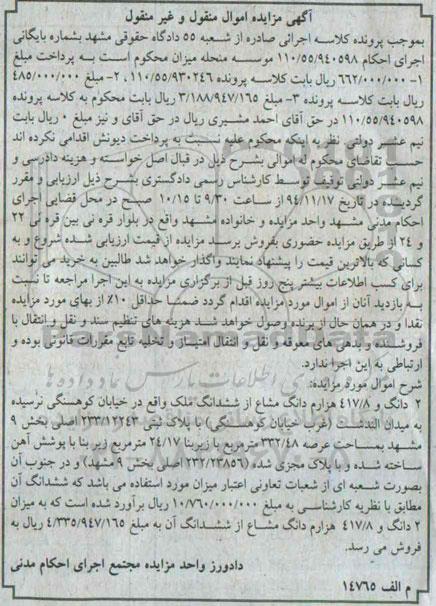 آگهی مزایده اموال منقول و غیر منقول
بموجب پرونده کلاسه اجرائی صادره از شعبه ۵۵ دادگاه حقوقی مشهد بشماره بایگانی
اجرای احکام ۱۱۰/۵۵/۹۴۰۵۹۸ موسسه منحله میزان محکوم است به پرداخت مبلغ
۱- ۶۶۲/۰۰۰/۰۰۰ ریال بابت کلاسه پرونده ۱۱۰/۵۵/۹۳۰۲۴۶، ۲- مبلغ ۴۸۵/۰۰۰/۰۰۰
ریال بابت کلاسه پرونده ۳- مبلغ ۳/۱۸۸/۹۴۷/۱۶۵ ریال بابت محکوم به کلاسه پرونده
۱۱۰/۵۵/۹۴۰۵۹۸ در حق آقای احمد مشیری ریال در حق آقای و نیز مبلغ ۰ ریال بابت
نیم عشر دولتی نظر به اینکه محکوم علیه نسبت به پرداخت دیونش اقدامی نکرده اند
حسب تقاضای محکوم له اموالی بشرح ذیل در قبال اصل خواسته و هزینه دادرسی و
نیم عشر دولتی توقیف توسط کارشناس رسمی دادگستری بشرح ذیل ارزیابی و مقرر
گردیده در تاریخ ۹۴/۱۱/۱۷ از ساعت ۹/۳۰ تا ۱۰/۱۵ صبح در محل فضایی اجرای
احکام مدنی مشهد واحد مزایده و خانواده مشهد واقع در بلوار قره نی بین قره نی ۲۲
و ۲۴ از طریق مزایده حضوری بفروش برسد مزایده از قیمت ارزیابی شده شروع و به
کسانی که بالاترین قیمت را پیشنهاد نمایند واگذار خواهد شد طالبین به خرید می توانند
برای کسب اطلاعات بیشتر پنج روز قبل از برگزاری مزایده به این اجرا مراجعه تا نسبت
به بازدید آنان از اموال مورد مزایده اقدام گردد ضمنا حداقل ۱۰٪ از بهای مورد مزایده
نقدا و در همان حال از برنده وصول خواهد شد هزینه های تنظیم سند و نقل و انتقال با
فروشنده و هزینه های معوقه و نقل و انتقال امتیاز و تخلیه تابع مقررات قانونی بوده و
ارتباطی به این اجرا ندارد.
شرح اموال مورد مزایده:
۲ دانگ و ۴۱۷/۸ هزارم دانگ مشاع از ششدانگ ملک واقع در خیابان کوهسنگی نرسیده
به میدان الندشت (غرب خیابان کوهسنگی) با پلاک ثبتی ۲۳۳/۱۲۲۴۳ اصلی بخش ۹
مشهد بمساحت عرصه ۳۳۲/۴۸ مترمربع با زیربنا ۲۴/۱۷ مترمربع زیر بنا با پوشش آهن
ساخته شده و با پلاک مجزی شده (۲۳۲/۲۳۸۵۶ اصلی بخش ۹ مشهد) و در جنوب آن
بصورت شعبه ای از شعبات تعاونی اعتبار میزان مورد استفاده می باشد که ششدانگ آن
مطابق با نظریه کارشناسی به مبلغ ۱۰/۷۶۰/۰۰۰/۰۰۰ ریال برآورد شده است که به میزان
۲ دانگ و ۴۱۷/۸ هزارم دانگ مشاع از ششدانگ آن به مبلغ ۴/۳۳۵/۹۴۷/۱۶۵ ریال به
فروش می رسد.
دادورز واحد مزایده مجتمع اجرای احکام مدنی
م الف ۱۴۷۶۵